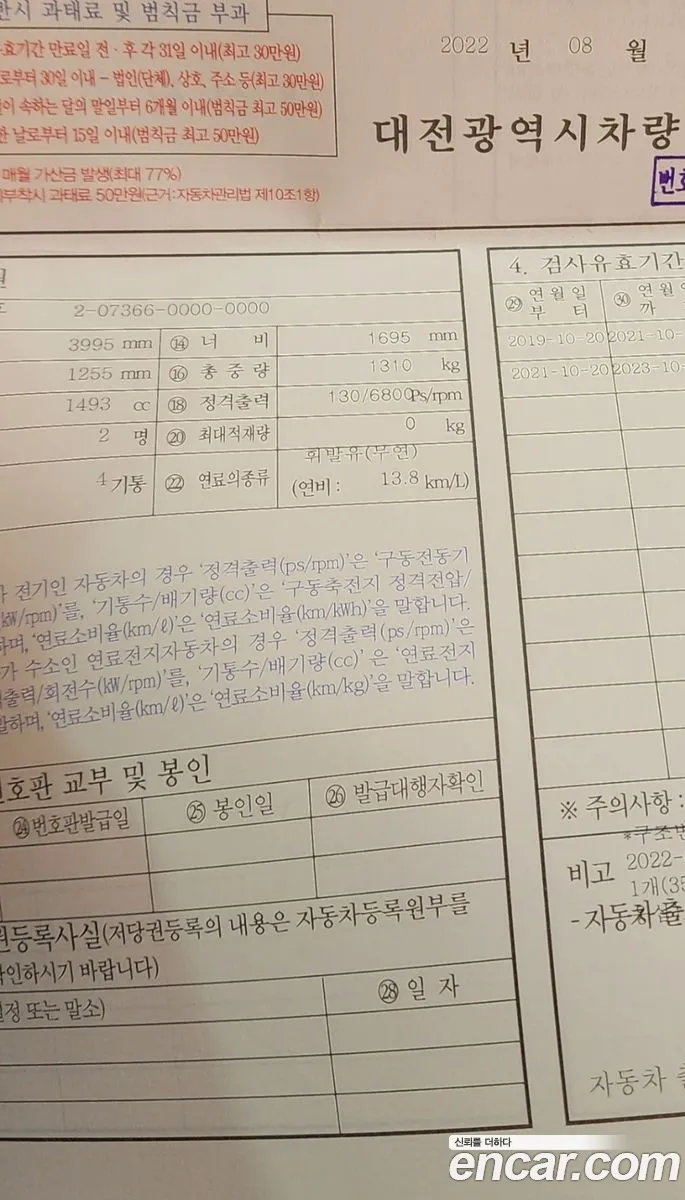 반시 과태료 및 범칙금 부과
효기간 만료일 전·후 각 31일 이내(최고 30만원)
로부터 30일 이내 - 법인(단체), 상호, 주소 등(최고 30만원)
이 속하는 달의 말일부터 6개월 이내(범칙금 최고 50만원)
한 날로부터 15일 이내(범칙금 최고 50만원)
매월 가산금 발생(최대 77%)
부착시 과태료 50만원(근거:자동차관리법 제10조1항)
2022 년 08 월
대전광역시차량
번호
원
호 2-07366-0000-0000
3995 mm ⑭ 너 비 1695 mm
1255 mm ⑯ 총 중 량 1310 kg
1493 cc ⑱ 정격출력 130/6800Ps/rpm
2 명 ⑳ 최대적재량 0 kg
4 기통 ㉒ 연료의종류 휘발유(무연)
(연비 : 13.8 km/L)
가 전기인 자동차의 경우 '정격출력(ps/rpm)'은 '구동전동기
(kW/rpm)'를, '기통수/배기량(cc)'은 '구동축전지 정격전압/
하며, '연료소비율(km/ℓ)'은 '연료소비율(km/kWh)'을 말합니다.
가 수소인 연료전지자동차의 경우 '정격출력(ps/rpm)'은
출력/회전수(kW/rpm)'를, '기통수/배기량(cc)' 은 '연료전지
말하며, '연료소비율(km/ℓ)'은 '연료소비율(km/kg)'을 말합니다.
번호판 교부 및 봉인
㉔번호판발급일 ㉕ 봉인일 ㉖ 발급대행자확인
권등록사실(저당권등록의 내용은 자동차등록원부를
확인하시기 바랍니다)
설정 또는 말소) ㉘ 일 자
4. 검사유효기간
㉙ 연월일 ㉚ 연월
부 터 까
2019-10-20 2021-10-
2021-10-20 2023-10-
※ 주의사항 :
*구조변
비고 2022-
1개(35
- 자동차출
자동차 출
신뢰를 더하다
encar.com